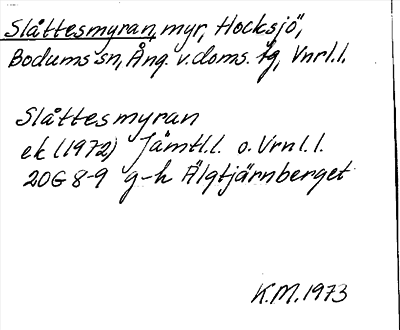 Slåttesmyran, myr, Hocksjö,
Bodums sn, Ång. v. doms. tg, Vnrl.l.
Slåttesmyran
ek (1972) Jämtl.l. o. Vrnl.l.
20G 8-9 g-h Älgtjärnberget
K.M. 1973